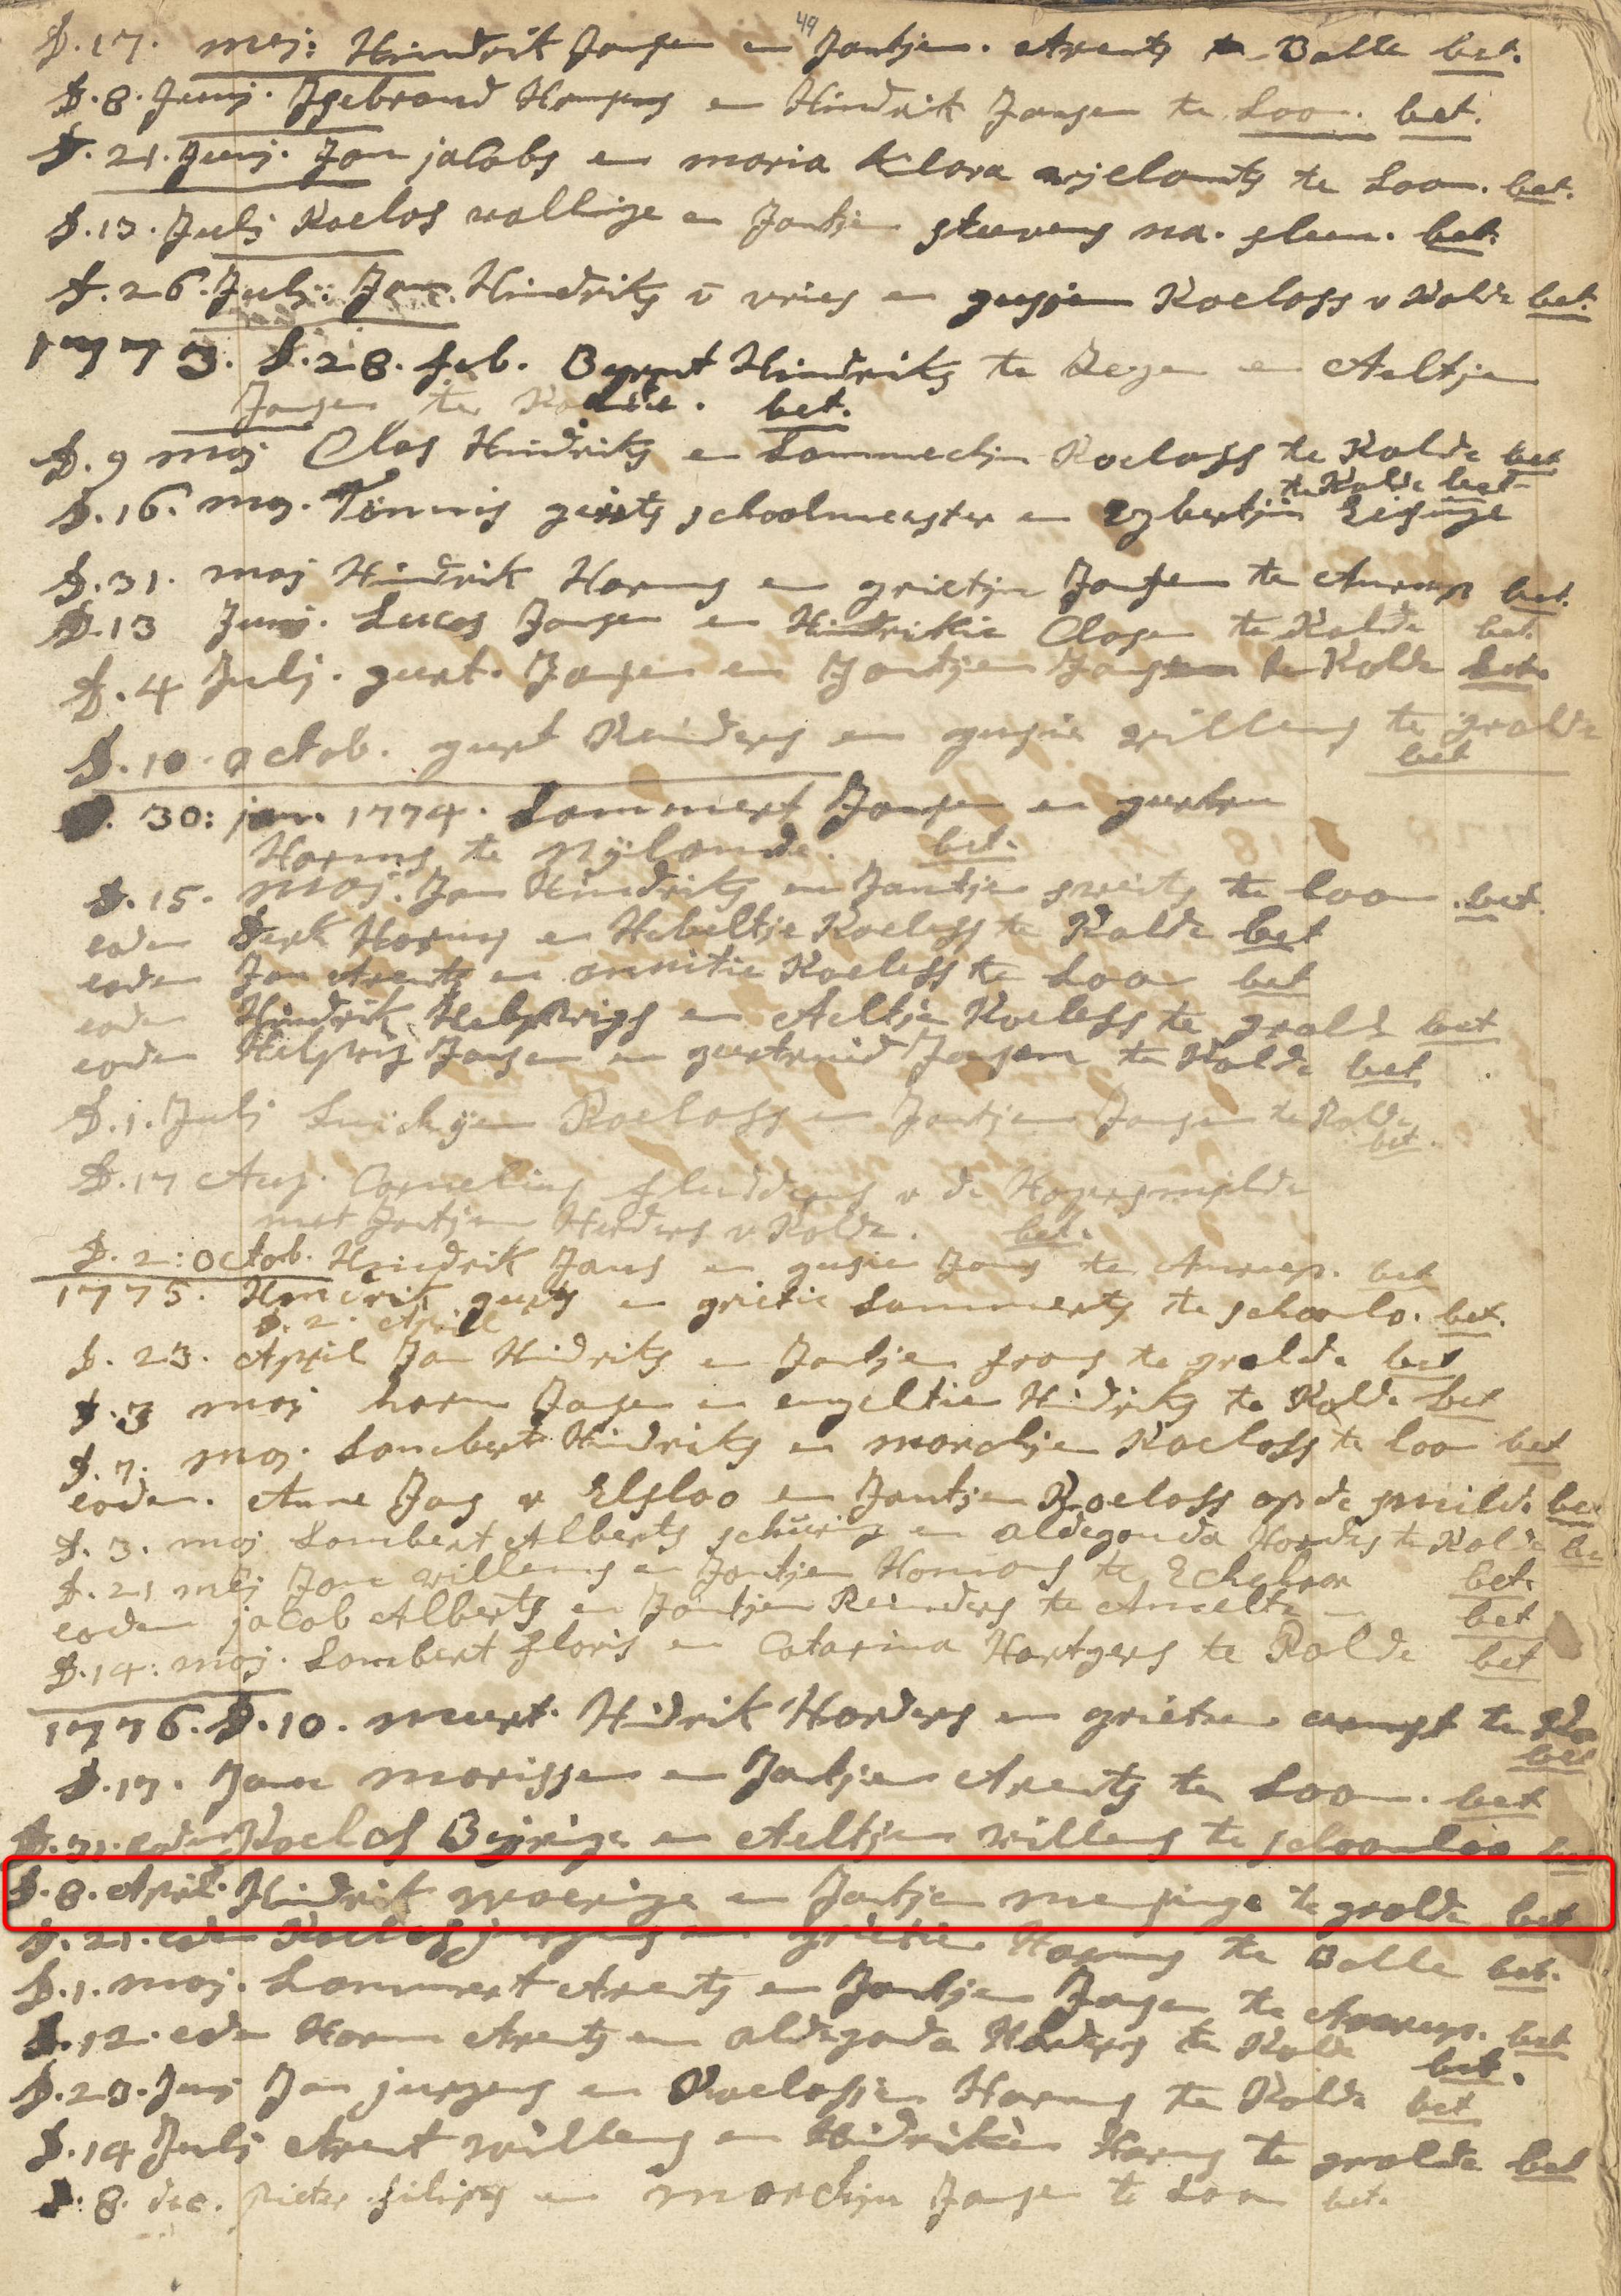 49
D. 17. maj: Hindrik Jansen en Jantjen. Arents te Balle bet.
D. 8. Junij. Isebrand Hampens en Hindrik Jansen te Loo. bet.
D. 21. Junij. Jan jacobs en maria klara te Loon. bet.
D. 13. Julij Roelof wallinge en Jantjen stevens na. sleen. bet.
D. 26. Julij. Jan Hindriks v vries en geesjen Roelofs v Rolde bet.
1773. D. 28. feb. Berent Hindriks te en Aeltjen
Jansen te Rolde. bet.
D. 9 maj Clas Hindriks en Lammechjen Roelofs te Rolde bet
te Rolde bet
D. 16. maj. Tonnis geerts schoolmeester en Egbertjen Eisinge
D. 31. maj Hindrik Harms en grietjen Jansen te Anreep bet.
D. 13 Junij. Lucas Jansen en Hindrikie Clasen te Rolde bet.
D. 4 Julij. geert. Jansen en Jantjen Jansen te Rolde bet.
D. 10. octob. geert Reinders en geesie willems te grolde
bet
D. 30: jan. 1774. Lammert Jansen en geertien
Harms te Nijlande. bet.
D. 15. maj. Jan Hindriks en Jantjen te loon. bet.
eodem Derk Harms en Hebeltje Roelefs te Rolde bet
eodem Jan Arents en annitie Roelefs te Loo bet
eodem Hindrik Helprigs en Aeltjen Roelefs te grold bet
eodem Helprig Jansen en geertruid Jansen te Rolde bet
D. 1. Julij Luichjen Roelofs en Jantjen Jansen te Rolde
bet.
D. 17 Aug. Cornelius sludders v de Hogersmilde
met Jantjen Herders v Rolde. bet.
D. 2: octob. Hindrik Jans en geesie Jans te Anreep. bet
1775. Hindrik geerts en grietie Lammerts te schoonlo. bet.
D. 2. April
D. 23. April Jan Hindriks en Jantjen frans te grolde bet
D. 3 maj harm Jansen en engeltien Hindriks te Rolde bet
D. 7. maj. Lambert Hindriks en marchjen Roelofs te loo bet
eodem. Anne Jans v Elsloo en Jantjen Roelofs op de smilde bet
D. 3. maj Lambert Alberts schuring en aldegonda Hordes te Rolde bet
D. 21 mej Jan willems en Jantjen Homans te Eckehaar bet.
eodem jacob Alberts en Jantjen Reinders te Ameltc bet
D. 14: maj. Lambert floris en Catarina Hartgers te Rolde bet
1776. D. 10. meert. Hidrik Harders en grietien te Ro
bet
D. 17. Jann morissen en Jantjen Arents te Loon. bet
D. 31. eodem Roelof Beijringe en Aeltjen willems te schoonloo bet
D. 8. April. Hindrik woeringe en Jantjen mensinge te grolde bet
D. 21. eodem Roelof jurgens en grietien Harms te Balle bet.
D. 1. maj. Lammert Arents en Jantjen Jansen te Anreep. bet
D. 12. eodem Harm Arents en aldegonda Harders te Rolde bet.
D. 23. Junij Jan jurgens en Roelofjen Harms te Rolde bet
D. 14 Julij Arent willems en Hidrikien Harms te grolde bet
D. 8. dec. pieter filips en marchjen Jansen te Loon bet.